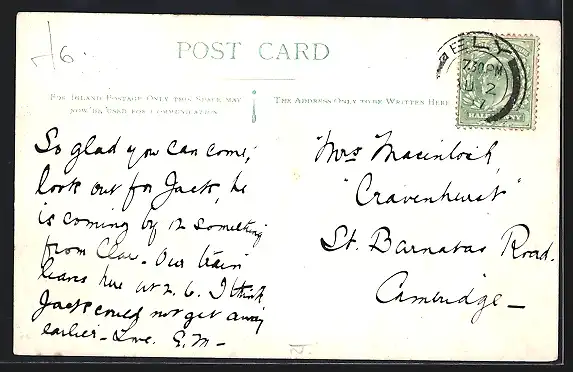 -/6.
POST CARD
ELY
7.30 PM
2
HALFPENNY
FOR INLAND POSTAGE ONLY THIS SPACE MAY
NOW BE USED FOR COMMUNICATION
THE ADDRESS ONLY TO BE WRITTEN HERE
So glad you can come,
look out for Jack, he
is coming by 12 something
from Clare. Our train
leaves here at 2. 6. I think
Jack could not get away
earlier - Love. E.M -
Mrs Macintosh,
"Cravenhurst"
St. Barnabas Road.
Cambridge -